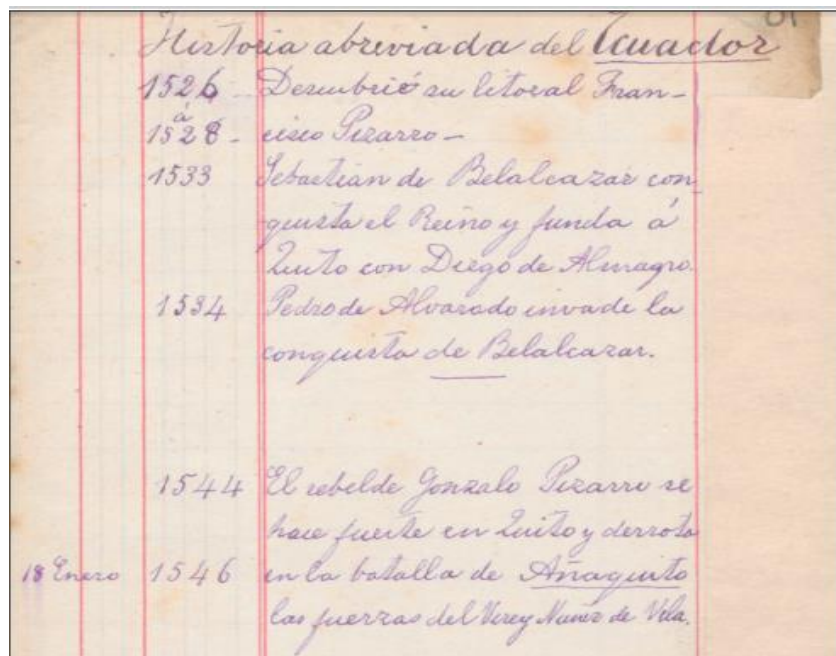 Historia abreviada del Ecuador
1526 - Descubrió su litoral Fran-
á
1528 - cisco Pizarro -
1533 Sebastian de Belalcazar con
quista el Reino y funda á
Quito con Diego de Almagro.
1534 Pedro de Alvarado invade la
conquista de Belalcazar.
1544 El rebelde Gonzalo Pizarro se
hace fuerte en Quito y derrota
18 Enero 1546 en la batalla de Añaquito
las fuerzas del Virey Nuñez de Vela.